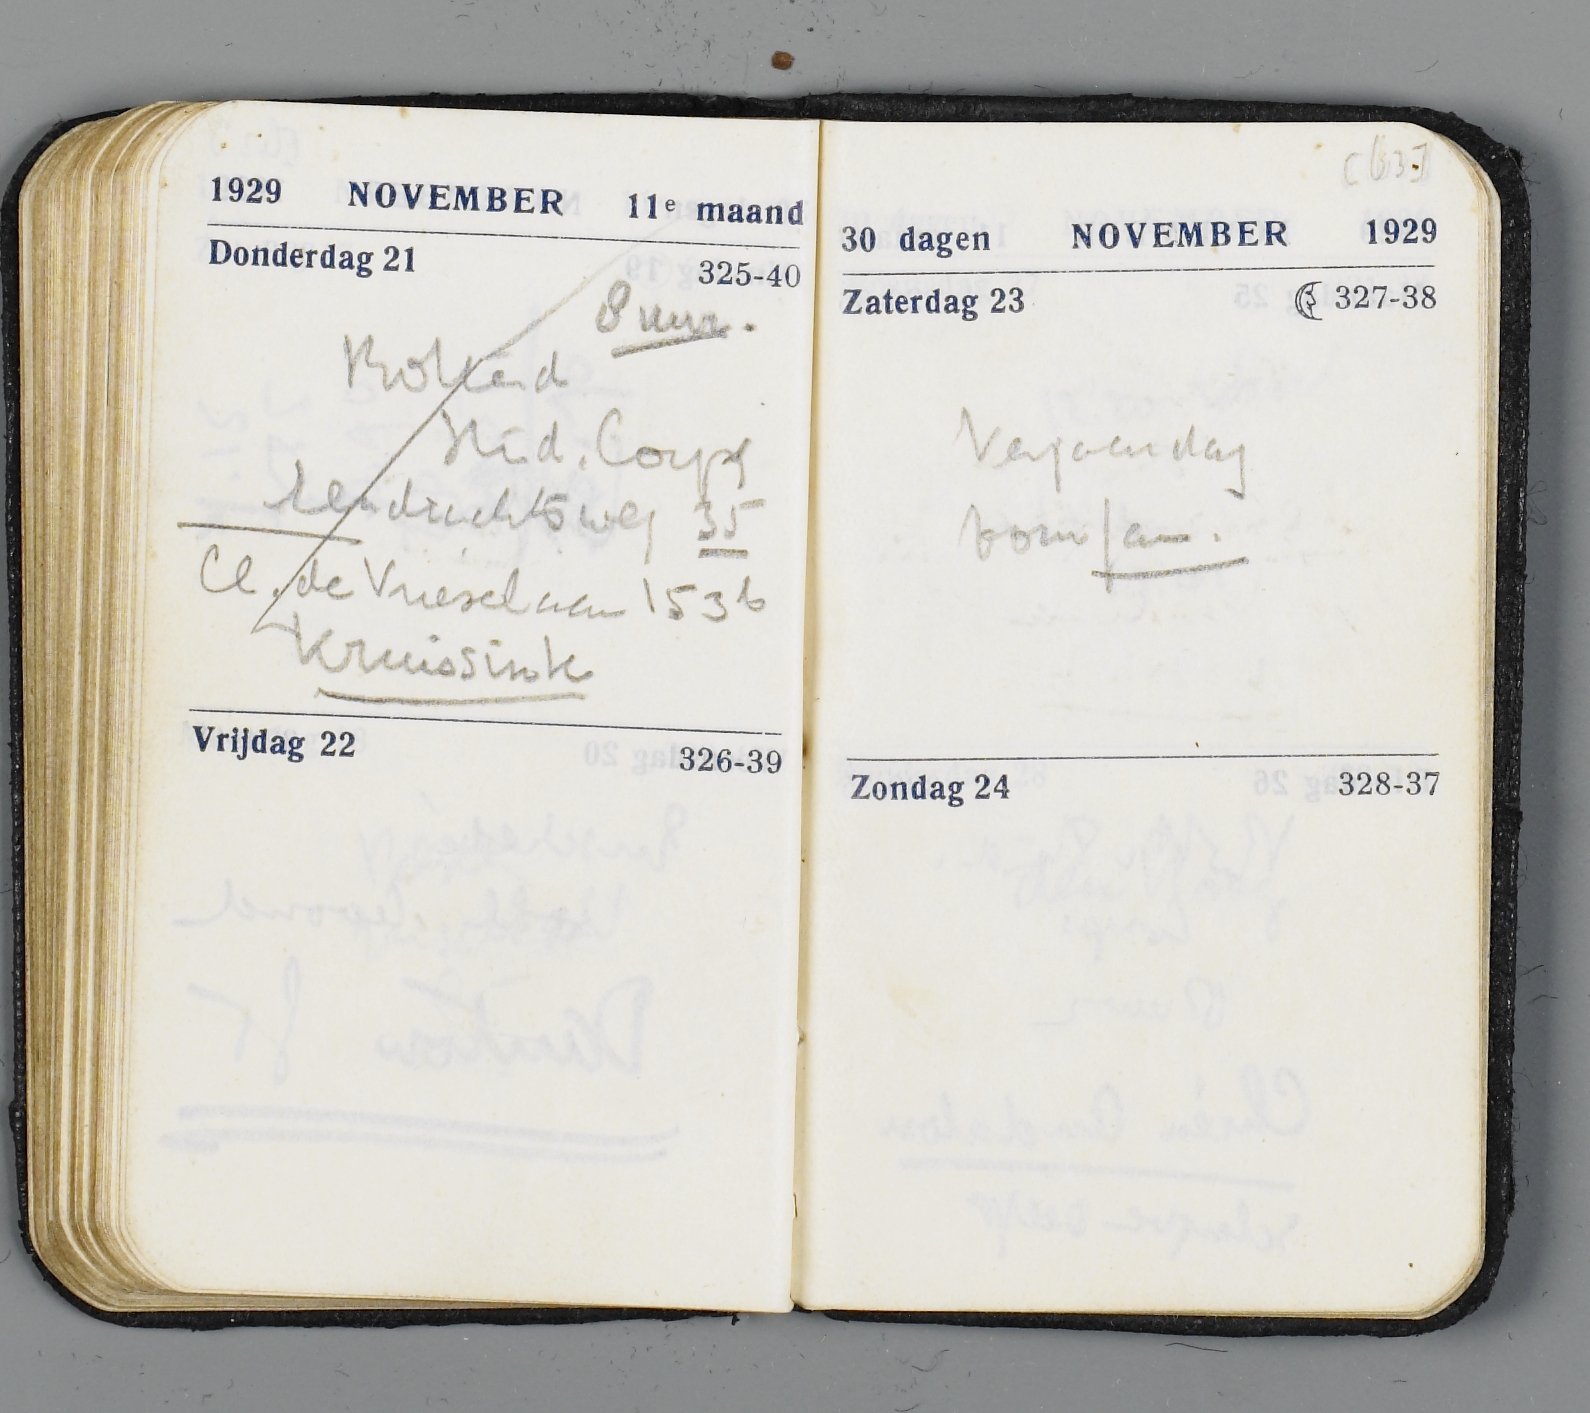 1929 NOVEMBER 11e maand
Donderdag 21 325-40
8 uur.
Rotterd
Stud. Corps
Eendrachtsweg 35
Cl. de Vrieselaan 153b
Kruissink
Vrijdag 22 326-39
30 dagen NOVEMBER 1929
Zaterdag 23 327-38
Verjaardag
tom
Zondag 24 328-37